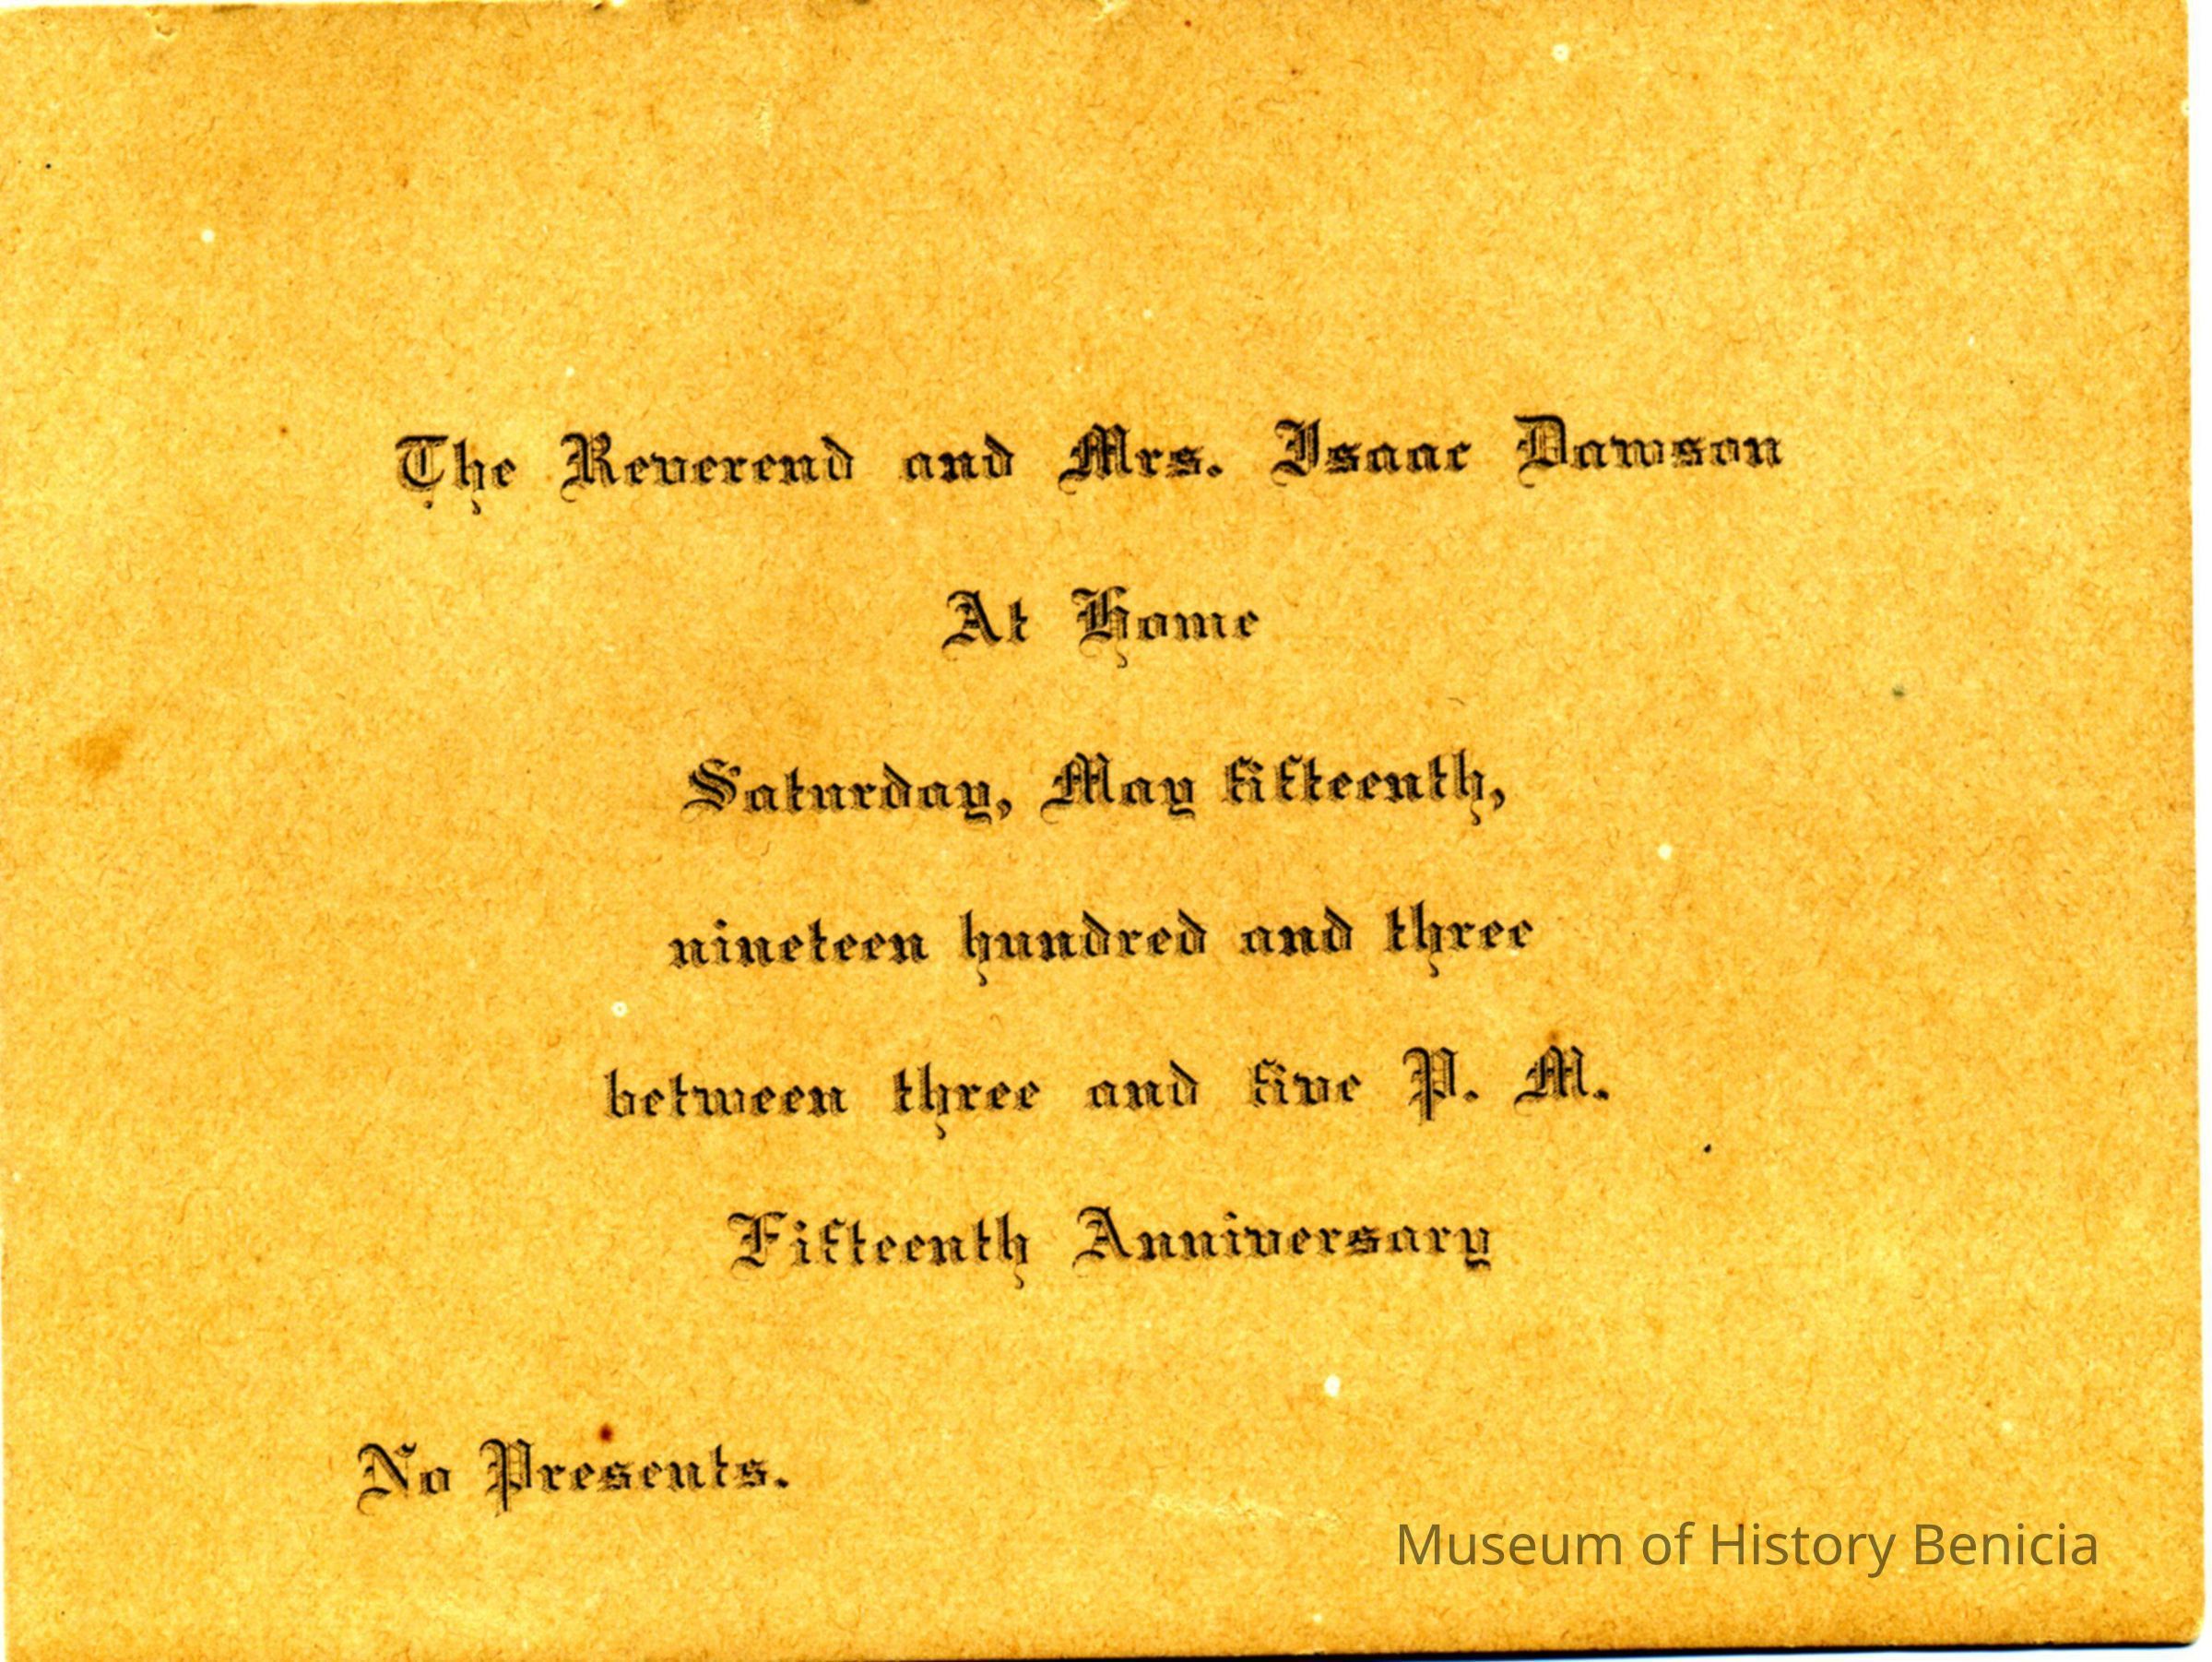 The Reverend and Mrs. Isaac Dawson
At Home
Saturday, May fifteenth,
nineteen hundred and three
between three and five P. M.
Fifteenth Anniversary
No Presents.
Museum of History Benicia